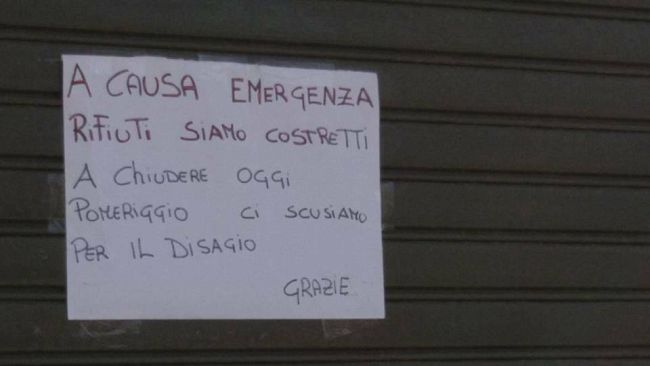 A CAUSA EMERGENZA
RIFIUTI SIAMO COSTRETTI
A CHIUDERE OGGI
POMERIGGIO CI SCUSIAMO
PER IL DISAGIO
GRAZIE